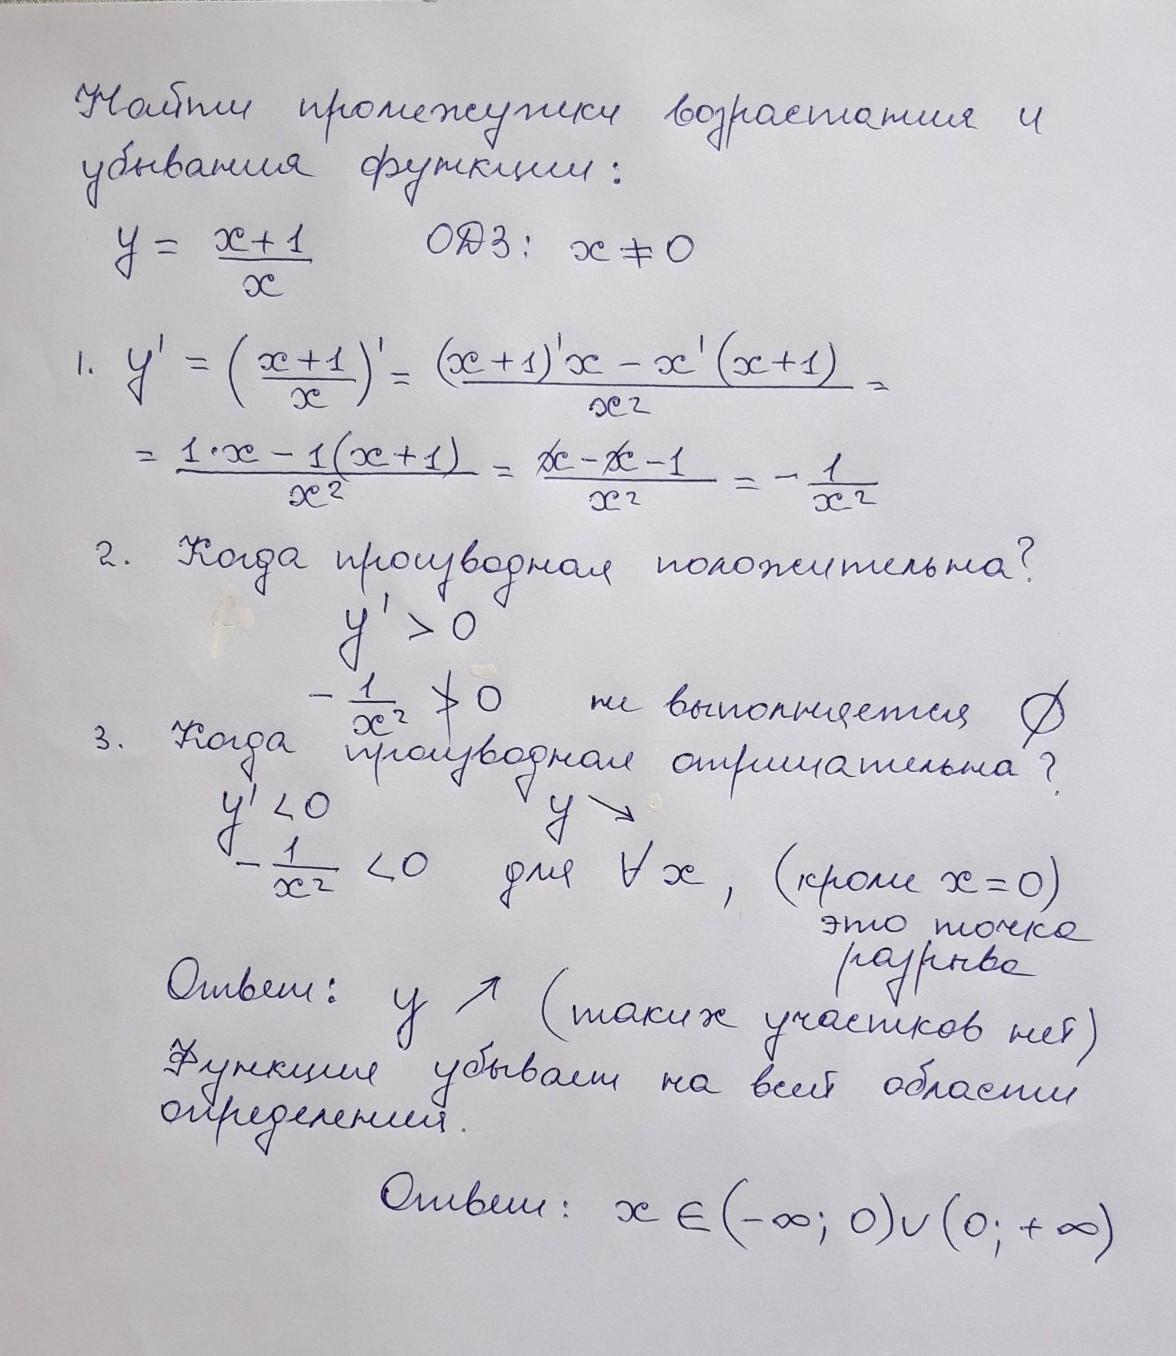 Найти промежутки возрастания и
убывания функции:
y = (x+1)/x   ОДЗ: x ≠ 0
1. y' = ((x+1)/x)' = ((x+1)'x − x'(x+1))/x² =
= (1·x − 1(x+1))/x² = (x − x − 1)/x² = − 1/x²
2. Когда производная положительна?
y' > 0
− 1/x² ≯ 0   не выполняется ∅
3. Когда производная отрицательна?
y' < 0   y ↘
− 1/x² < 0   для ∀ x, (кроме x = 0)
это точка
разрыва
Ответ: y ↗ (таких участков нет)
Функция убывает на всей области
определения.
Ответ: x ∈ (−∞; 0) ∪ (0; +∞)